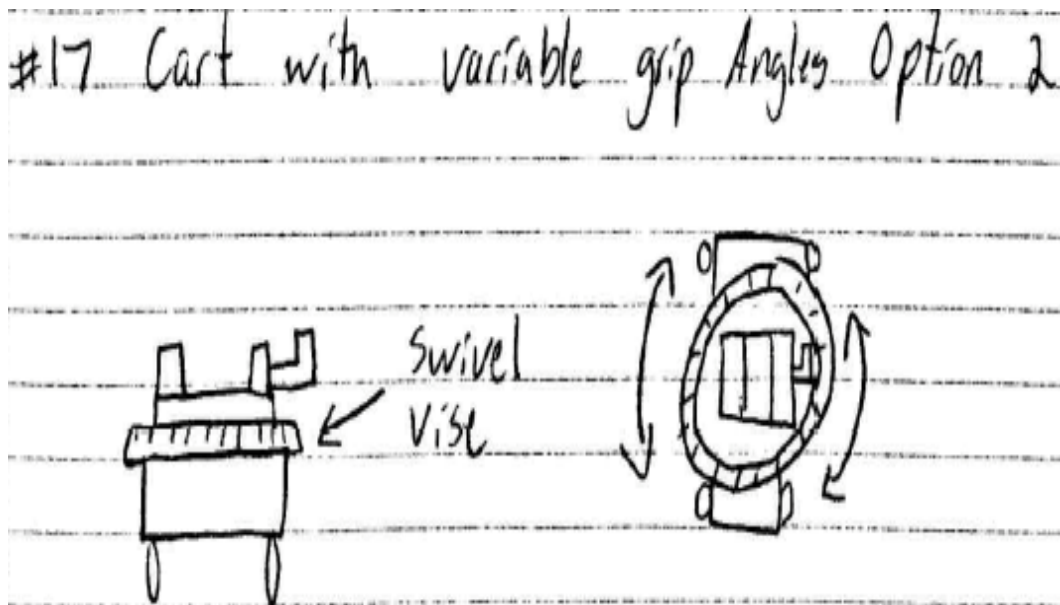 #17 Cart with variable grip Angles Option 2
swivel
vise